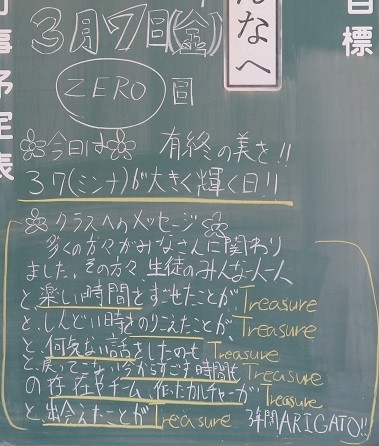 目標
んなへ
事予定表
3月7日(金)
ZERO 回
今日は 有終の美を!!
37(ミンナ)が大きく輝く日!!
クラスへのメッセージ
多くの方々がみなさんに関わり
ました。その方々、生徒のみんな一人一人
と、楽しい時間をすごせたことが、Treasure
と、しんどい時をのりこえたことが、Treasure
と、何気ない話をしたのも Treasure
と、戻ってこない今からすごす時間も Treasure
の存在やチーム、作ったカルチャーが Treasure
と、出会えたことが Treasure 3年間ARIGATO!!